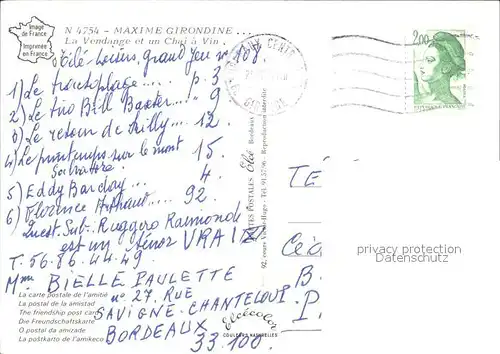 Image
de France
Imprimée
en France
N 4754 - MAXIME GIRONDINE...
La Vendange et un Chai à Vin.
Télé-Loisirs, grand Jeu n° 108.
1) Le tractoplage.... B. 3
2) Le trio Bill Baxter... 9
3) Le retour de Lilly... 12
4) Le printemps sur le mont 15
5) Eddy Barclay... 4.
6) Florence Arthaud... 92.
Quest. Sub. Ruggero Raimondi
est un ténor VRAI
T. 56.86.44.49
Mme BIELLE PAULETTE
n° 27, RUE
SAVIGNE-CHANTELOUP
BORDEAUX
33.100.
La carte postale de l'amitié
La postal de la amistad
The friendship post card
Die Freundschaftskarte
O postal da amizade
La poŝtkarto de l'amikeco
Elcécolor
COULEURS NATURELLES
92, cours Victor-Hugo - Tél. 91.37.06 - Reproduction interdite
CARTES POSTALES Elcé Bordeaux
BORDEAUX CENTRE
GIRONDE
2,00
RÉPUBLIQUE FRANÇAISE
TÉ
Céd
B.
P.
privacy protection
Datenschutz